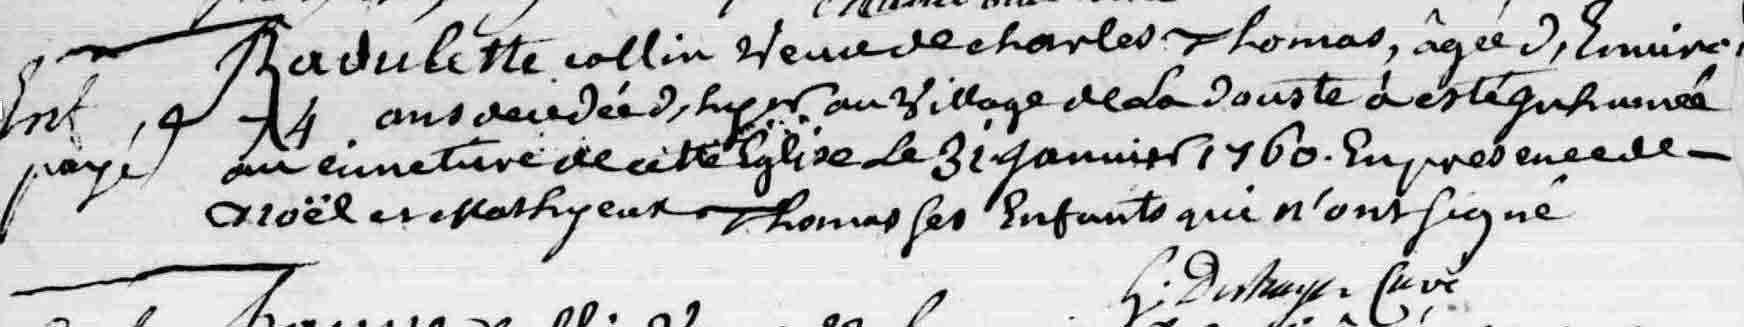 Radulette collin Veuve de charles Thomas, âgée d, Enviro
Ent 74 ans decedée d, hyer au Village de La Douste à esté Inhumée
payé au cimetiere de cette Eglise Le 31 Janvier 1760. En presence de –
Noël et Mathyeux Thomas ses Enfants qui n'ont signé
G: Deshayes Curé